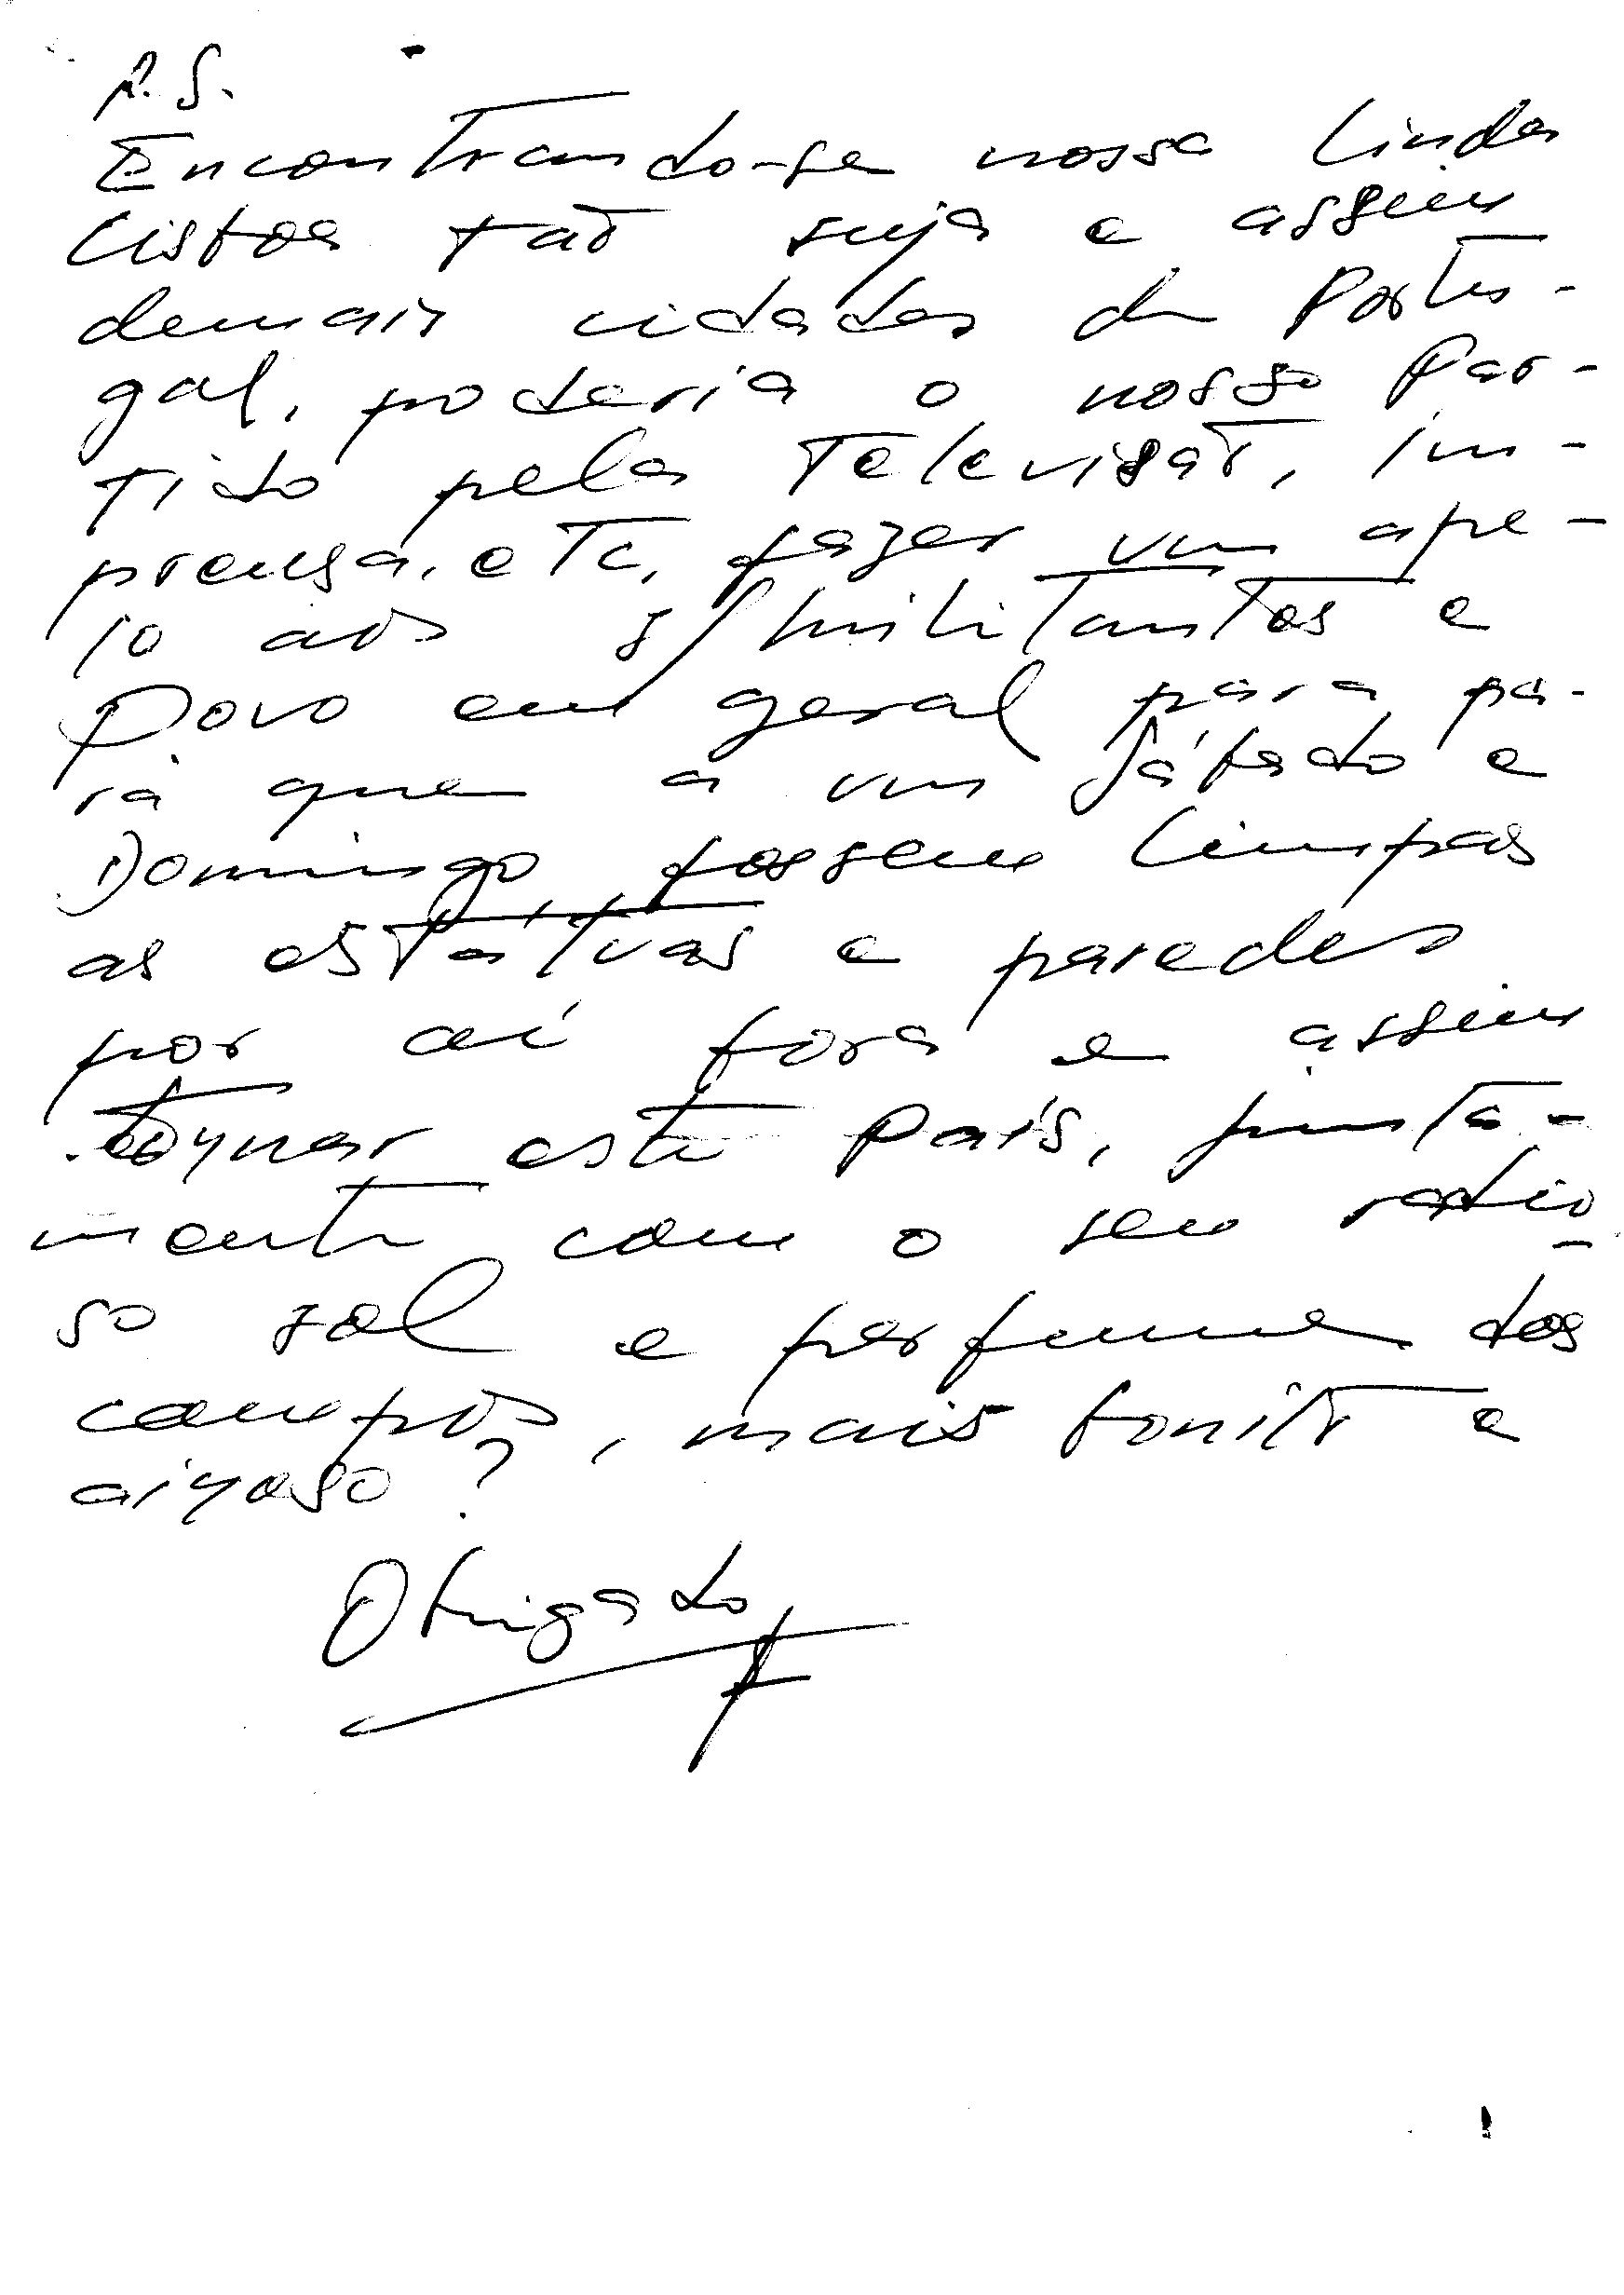 P.S.
Encontrando-se nossa linda
Lisboa tão suja e assim
demais cidades de Portu-
gal, poderia o nosso Par-
tido pela Televisão, im-
prensa, etc, fazer um ape-
lo aos s/ militantes e
Povo em geral para pa-
ra que a um Sábado e
Domingo fossem limpas
as estátuas e paredes
por aí fora e assim
tornar este País, junta-
mente com o seu radio-
so sol e perfume dos
campos, mais bonito e
airoso?
Obrigado